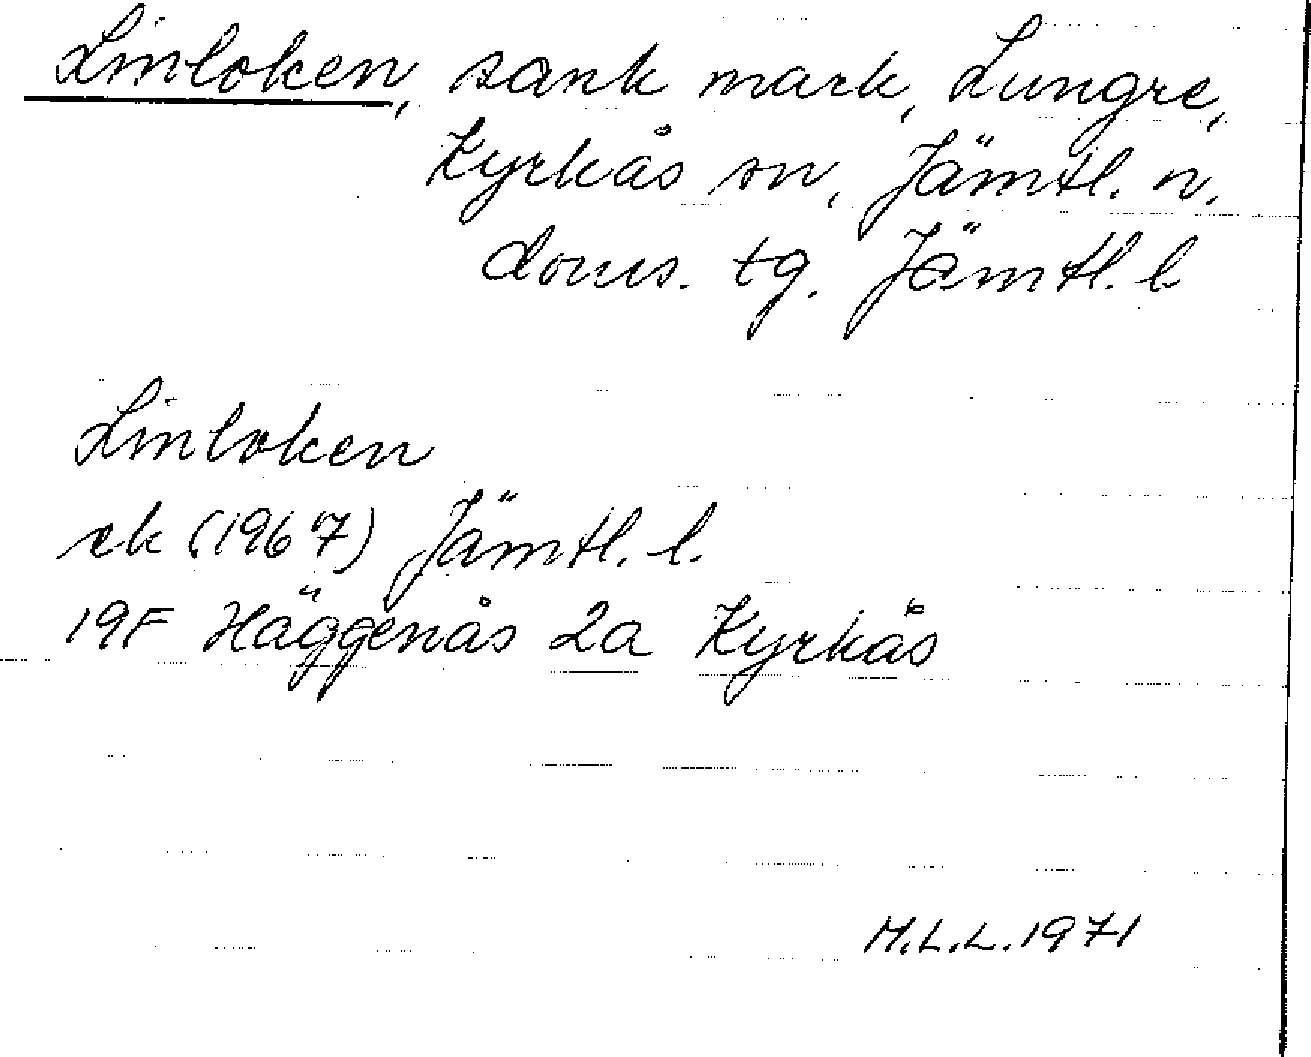 Linloken, sank mark, Lungre,
Kyrkås sn, Jämtl. n.
doms. tg. Jämtl. l
Linloken
ek (1967) Jämtl. l.
19F Häggenås 2a Kyrkås
M.L.L. 1971